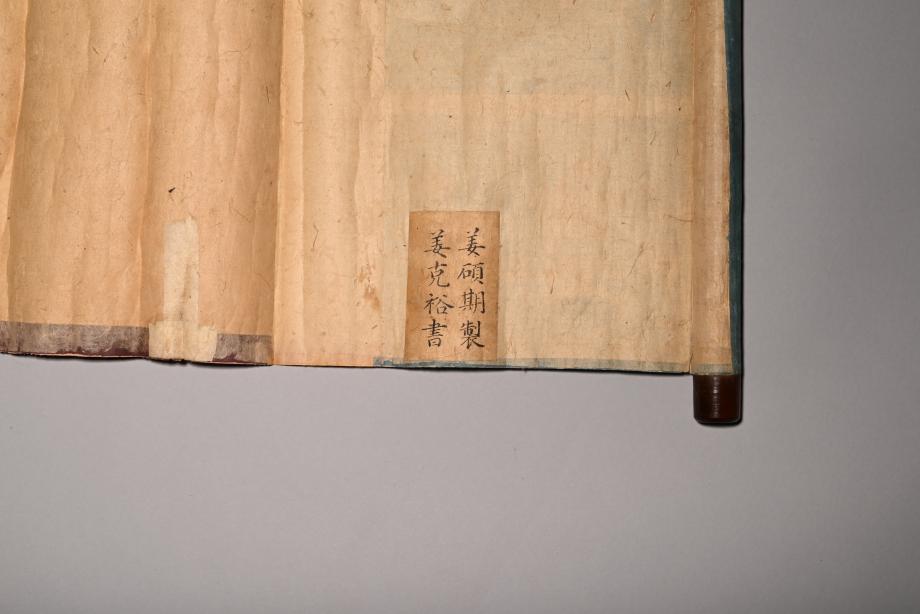 姜碩期製
姜克裕書